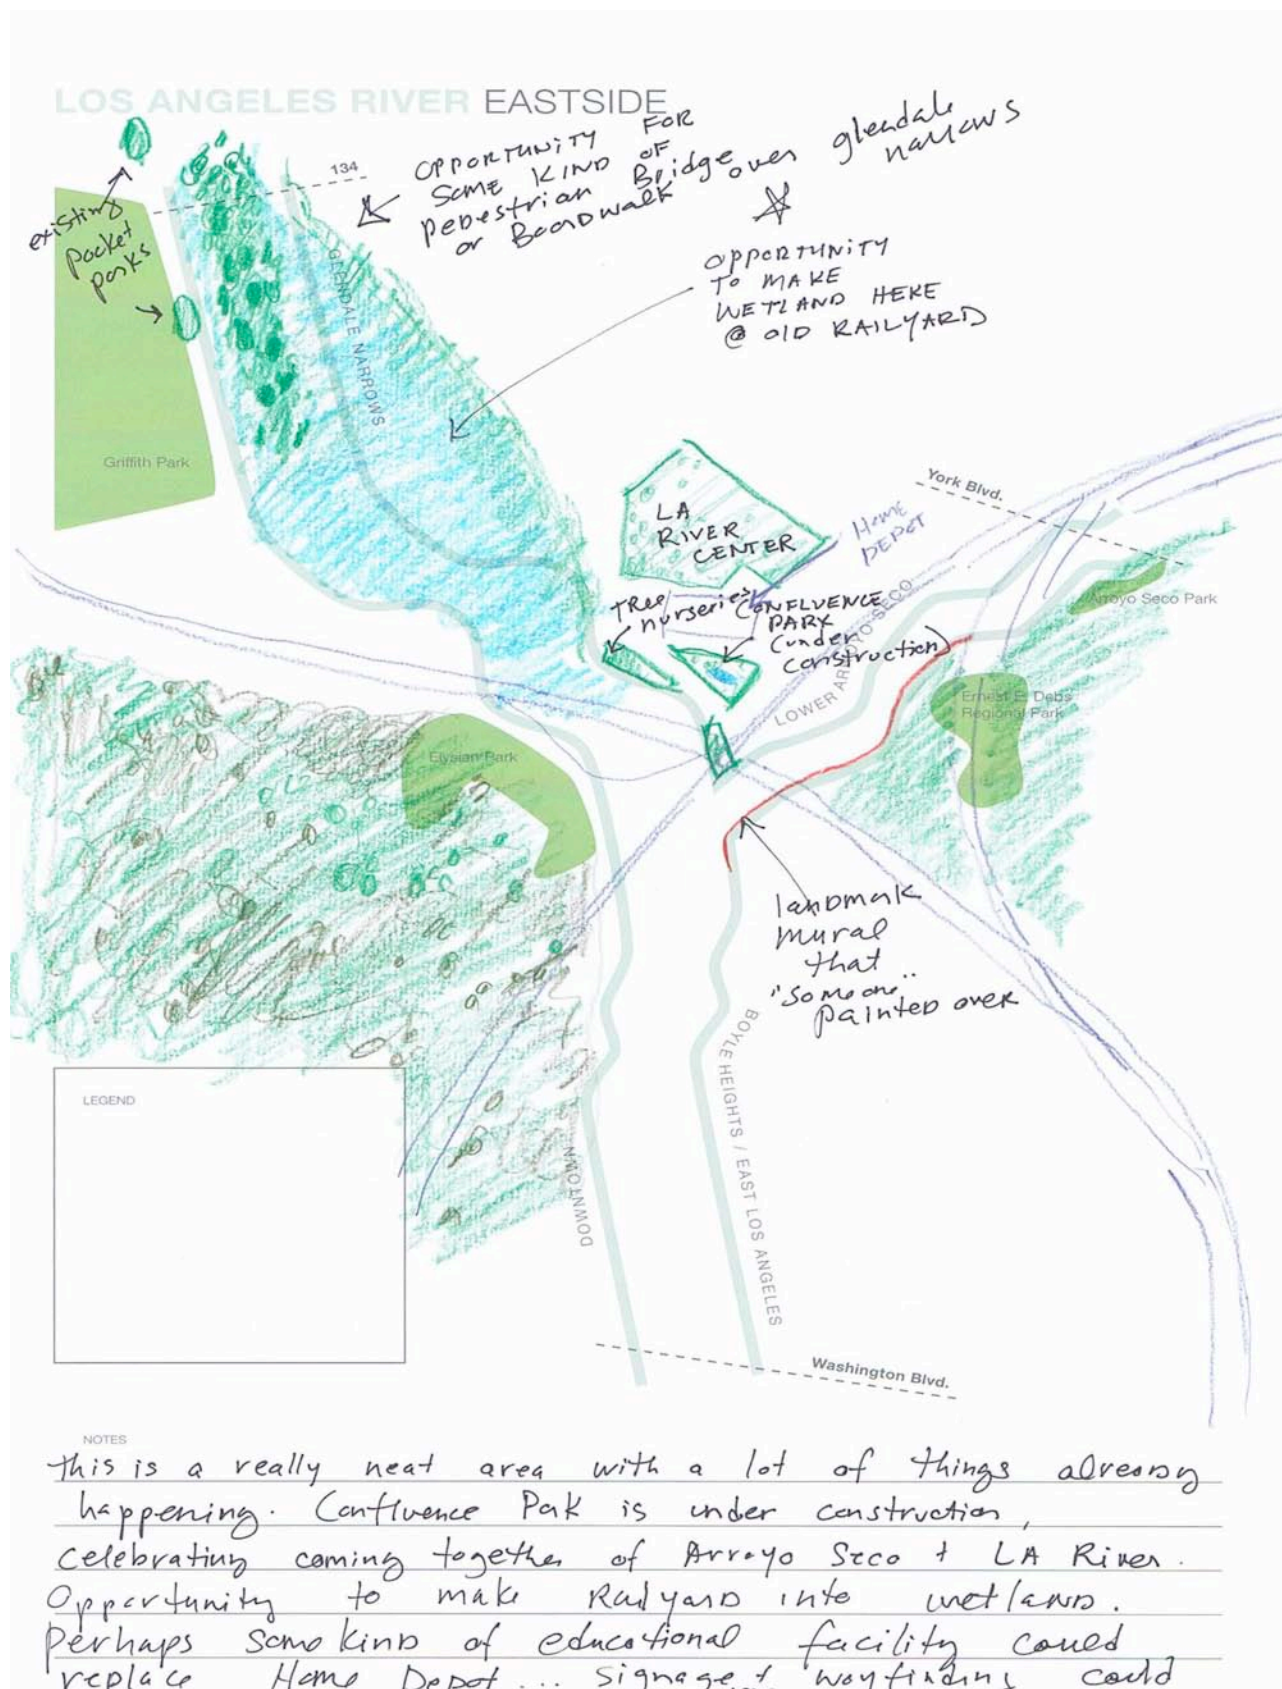 LOS ANGELES RIVER EASTSIDE
134
OPPORTUNITY FOR
SOME KIND OF
PEDESTRIAN Bridge over glendale narrows
or Boardwalk
existing
pocket
parks
OPPORTUNITY
TO MAKE
WETLAND HERE
@ OLD RAILYARD
GLENDALE NARROWS
Griffith Park
York Blvd.
LA
RIVER
CENTER
Home
DEPOT
TREE
nurseries
CONFLUENCE
PARK
(under
construction)
LOWER ARROYO SECO
Arroyo Seco Park
Ernest E. Debs
Regional Park
Elysian Park
landmark
mural
that
"someone"
painted over
LEGEND
DOWNTOWN
BOYLE HEIGHTS / EAST LOS ANGELES
Washington Blvd.
NOTES
this is a really neat area with a lot of things already
happening. Confluence Pak is under construction,
celebrating coming together of Arroyo Seco + LA River.
Opportunity to make Railyard into wetland.
Perhaps some kind of educational facility could
replace Home Depot ... signage + wayfinding could